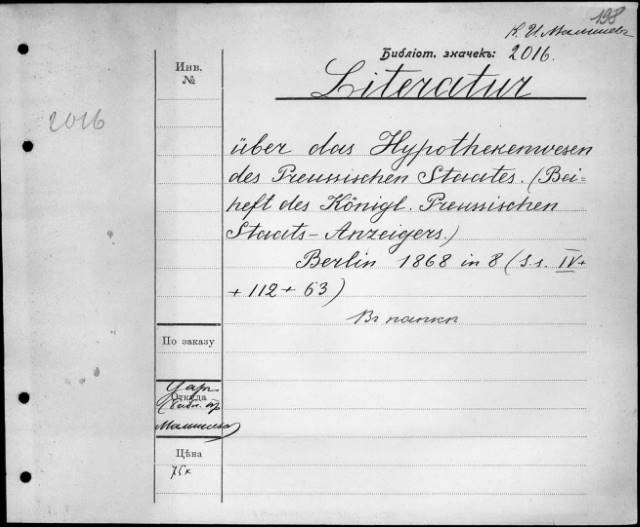 198
К. И. Малышевъ
Библіот. значекъ: 2016.
Инв.
№
Literatur
2016
über das Hypothekenwesen
des Preussischen Staates. (Bei=
heft des Königl. Preussischen
Staats-Anzeigers.)
Berlin 1868 in 8 (S.s. IV+
+ 112 + 63)
Въ папкѣ
По заказу
Откуда
Даръ
Малышева
Цѣна
75к